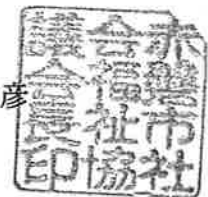 彦
赤磐市社
会福祉協
議会長印